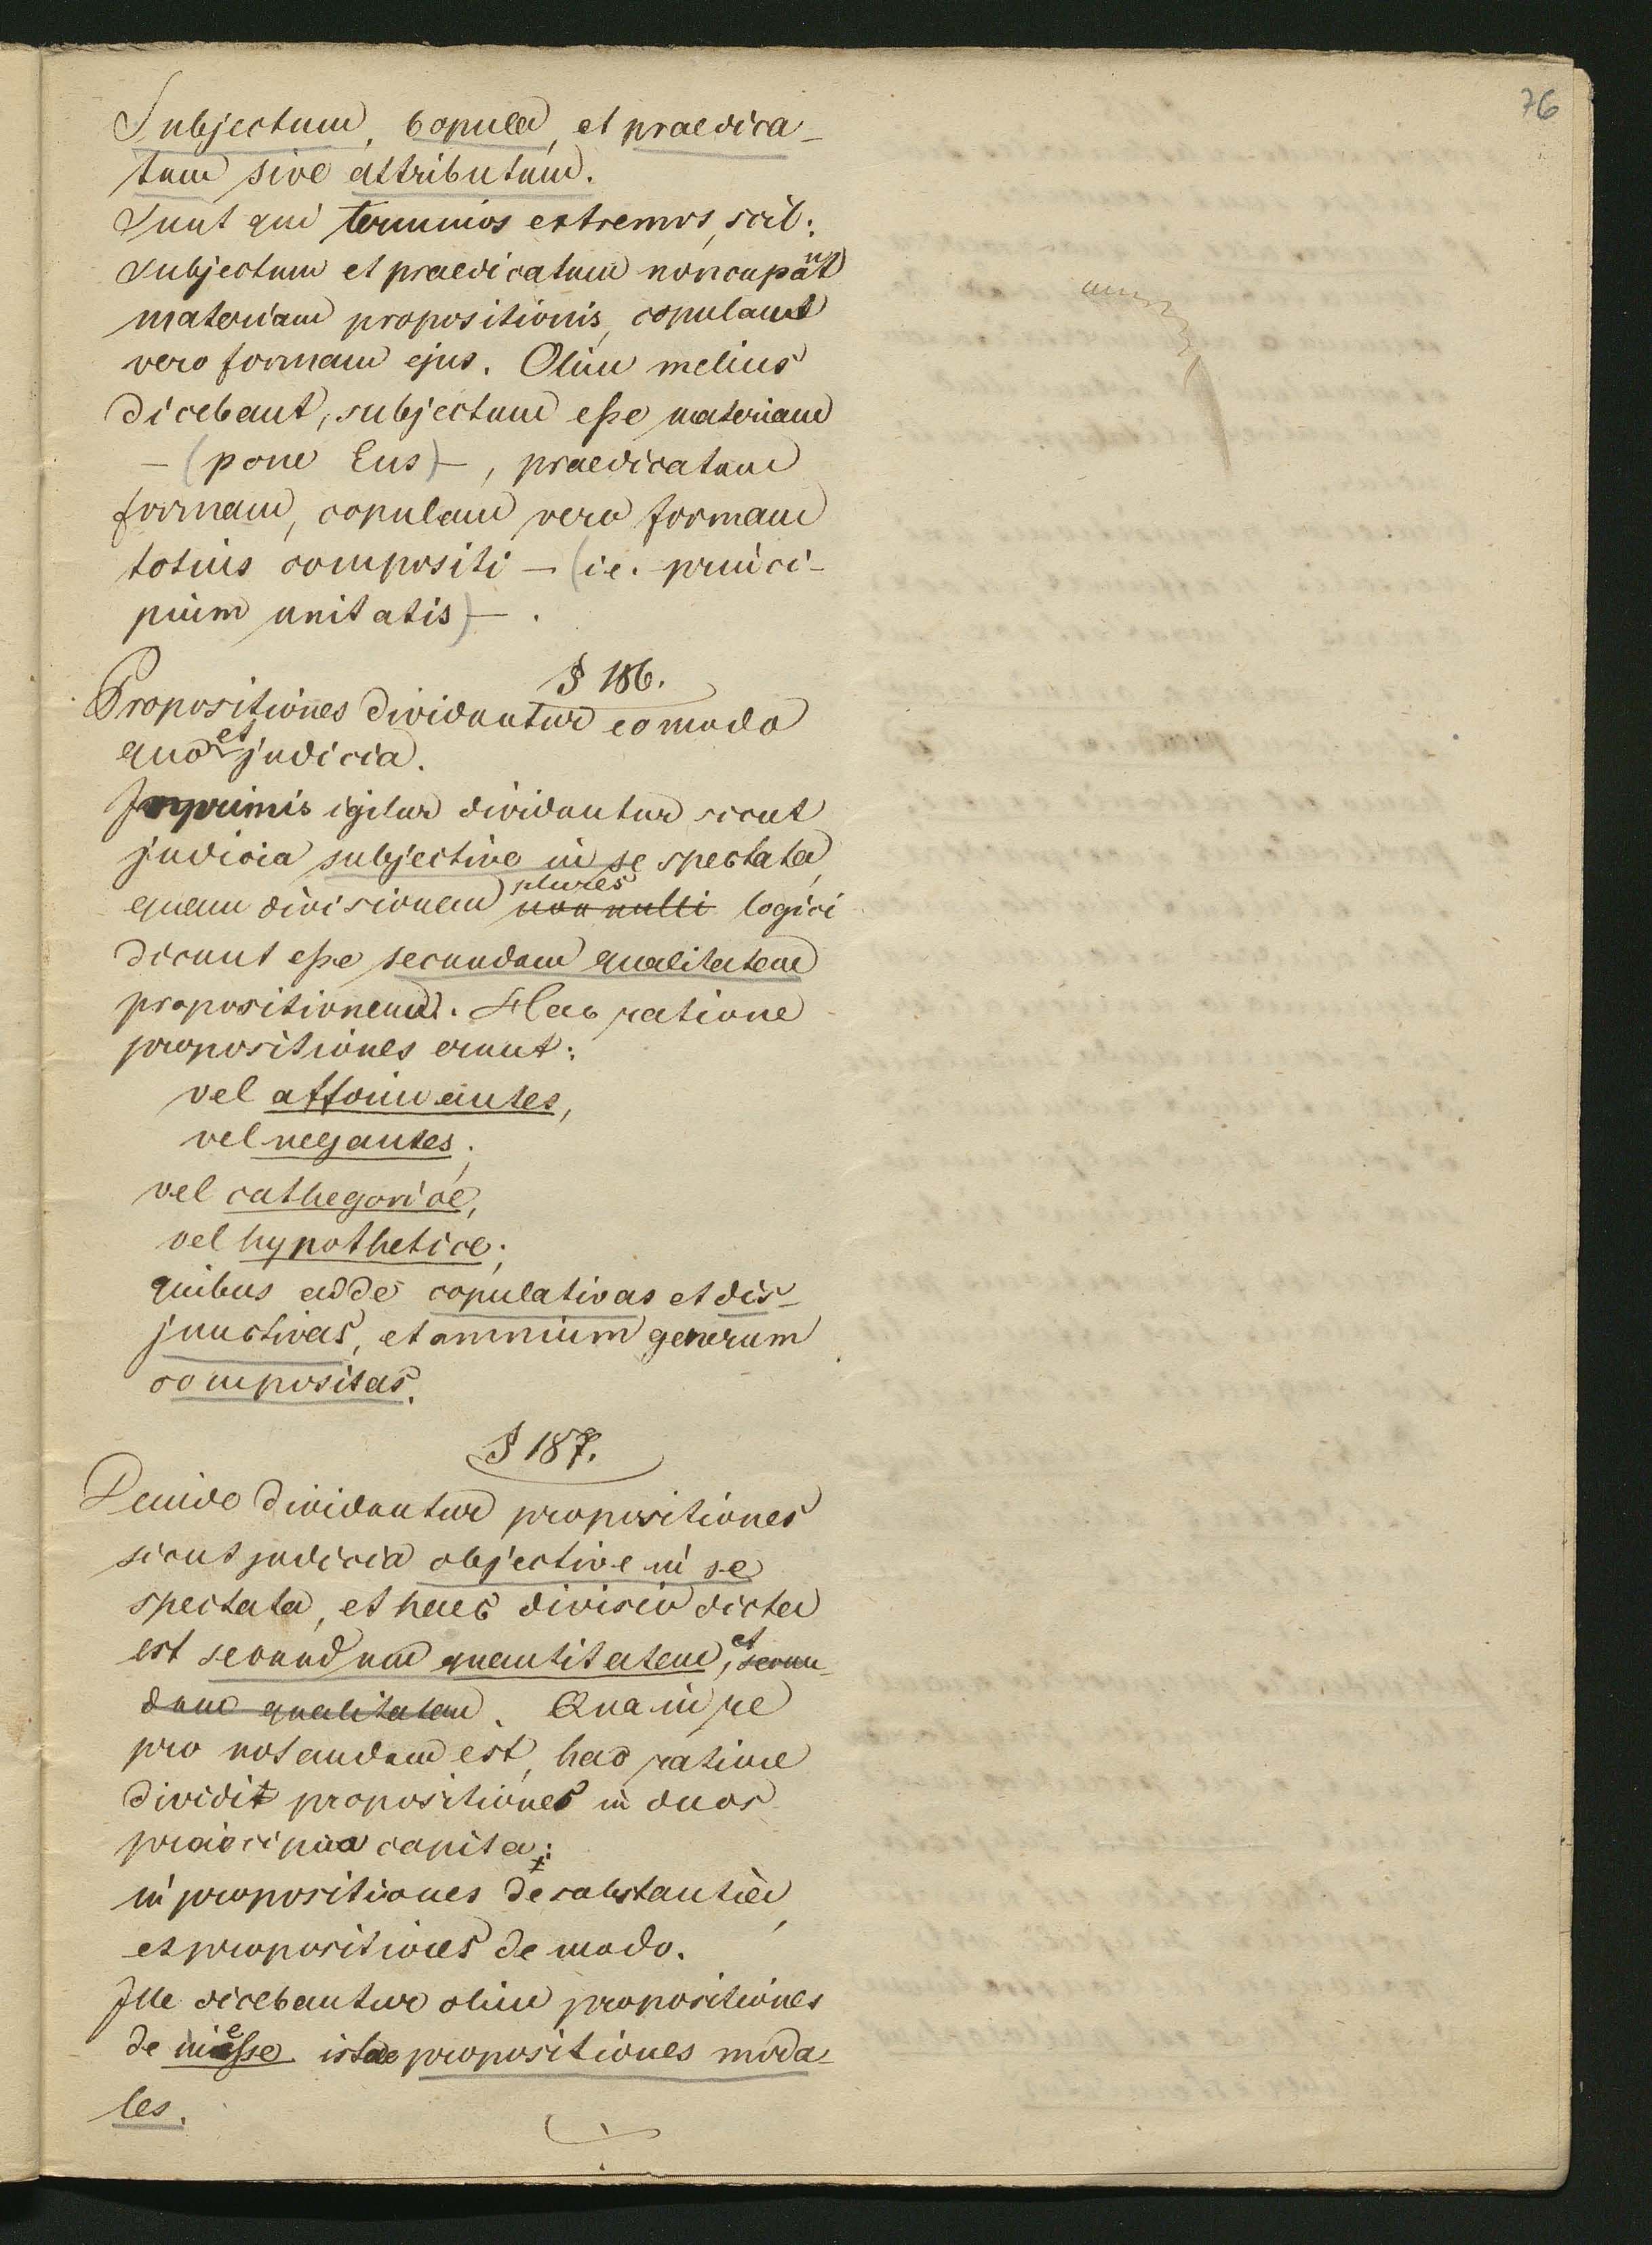 76
Subjectum, Copula, et praedica-
tum sive attributum.
Sunt qui terminos extremos, scil:
subjectum et praedicatum noncupant
materiam propositionis, copulam
vero formam ejus. Olim melius
dicebant, subjectum eße materiam
– (pone Ens) –, praedicatum
formam, copulam vero formam
totius compositi – (i.e. princi-
pium unitatis) – .
§ 186.
Propositiones dividuntur eo modo
quo et judicia.
Inprimis igitur dividuntur sicut
judicia subjective in se spectata,
quam divisionem plures non nulli logici
dicunt eße secundum qualitatem
propositionem. Hac ratione
propositiones erunt:
vel affirmantes,
vel negantes;
vel cathegoricae,
vel hypotheticae;
quibus adde copulativas et dis-
junctivas, et omnium generum
compositas.
§ 187.
Deinde dividuntur propositiones
sicut judicia objective in se
spectata, et haec divisio dicta
est secundum quantitatem, et secun-
dum qualitatem. Qua in re
pro notandum est, hac ratione
dividit propositiones in duos
praecipua capita:
in propositiones de substantia,
et propositiones de modo.
Ille dicebantur olim propositiones
de inesse istae propositiones moda-
les.